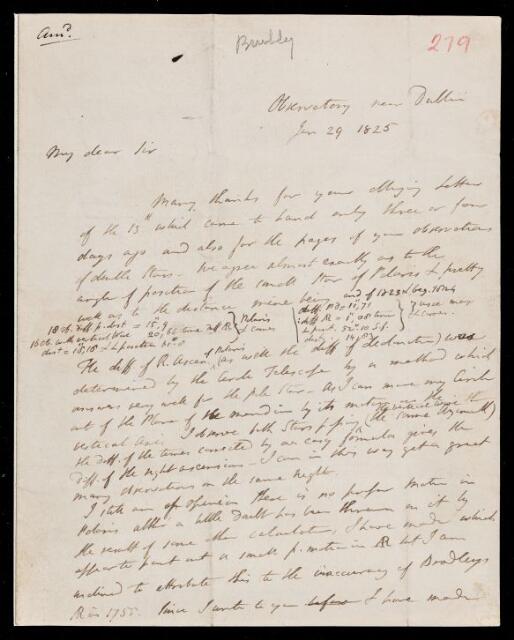 Ansd.
Bradley
279
Observatory near Dublin
Jan 29 1825
My dear Sir
Many thanks for your obliging letter
of the 13th which came to hand only three or four
days ago and also for the pages of your observations
of double stars. We agree almost exactly as to the
angle of position of the small star of Polaris & pretty
well as to the distance mine being
and of
18 ob. diff p. dist = 18",9
Polaris
The diff. of R. Ascen of Polaris (as well the diff of declination) was
determined by the Circle Telescope by a method which
answers very well for the pole star. As I can move my Circle
out of the plane of the meridian by its motion on the
vertical axis I observe both stars passing the vertical wire (the same Azimuth)
the diff. of the times corrected by an easy formula gives the
diff. of the right ascensions. I can in this way get a great
many observations on the same night.
I still am of opinion there is no proper motion in
Polaris altho a little doubt has been thrown on it by
the result of some other calculations I have made which
appear to point out a small p. motion in AR but I am
inclined to attribute this to the inaccuracy of Bradleys
R in 1755. Since I wrote to you I have made